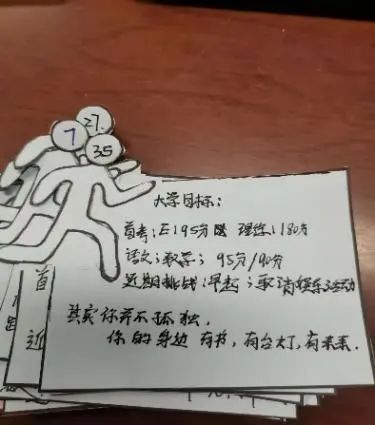 27.
7
35
大学目标：
首考：E195分 理综：180分
语文；数学；95分/90分
近期挑战：早起；取消娱乐活动
其实你并不孤独.
你的身边 有书，有台灯，有未来.
首
近